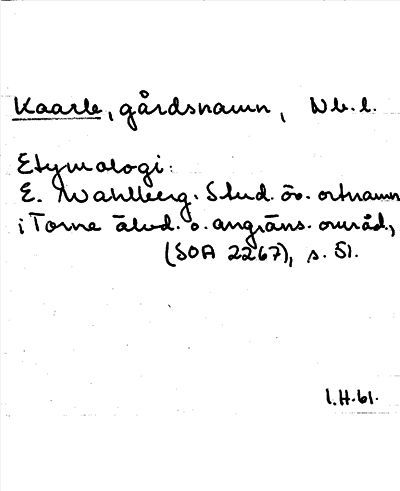 Kaarle, gårdsnamn, Nb. l.
Etymologi:
E. Wahlberg. Stud. öv. ortnamn
i Torne älvd. o. angräns. områd.,
(SOA 2267), s. 51.
I.H.61.